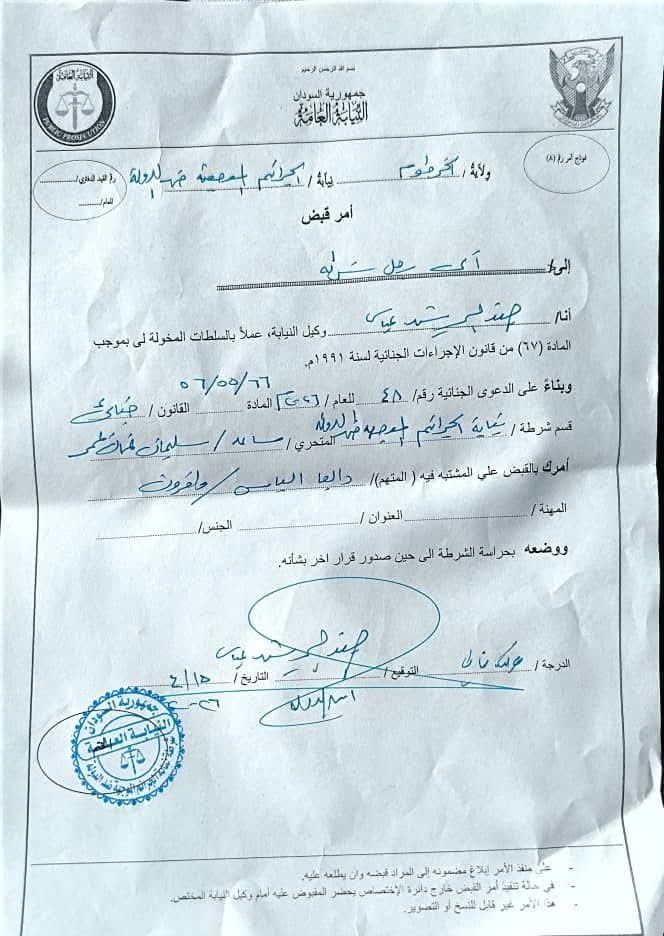 بسم الله الرحمن الرحيم
جمهورية السودان
النيابة العامة
النيابة العامة
PUBLIC PROSECUTION
نموذج أمر رقم (٨)
ولاية / الخرطوم نيابة / الجرائم الموجهة ضد الدولة
رقم القيد الدفتري/
للعام/
أمر قبض
إلى/ أي رجل شرطة
أنا/ وكيل النيابة، عملاً بالسلطات المخولة لى بموجب
المادة (٦٧) من قانون الإجراءات الجنائية لسنة ١٩٩١م.
وبناءً على الدعوى الجنائية رقم/ ٤٨ للعام / المادة ٥٦/٥٥/٢٦ القانون / جنائي
قسم شرطة / نيابة الجرائم الموجهة ضد الدولة المتحري / مساعد / سليمان
أمرك بالقبض علي المشتبه فيه ( المتهم)/ داليا الياس / وآخرون
المهنة / العنوان / الجنس/
ووضعه بحراسة الشرطة الى حين صدور قرار اخر بشأنه.
الدرجة / التوقيع / التاريخ / ٤/١٥
٢٠٢٦
جمهورية السودان
النيابة العامة
- على منفذ الأمر إبلاغ مضمونه إلى المراد قبضه وان يطلعه عليه.
- في حالة تنفيذ أمر القبض خارج دائرة الإختصاص يحضر المقبوض عليه أمام وكيل النيابة المختص.
- هذا الأمر غير قابل للنسخ أو التصوير.